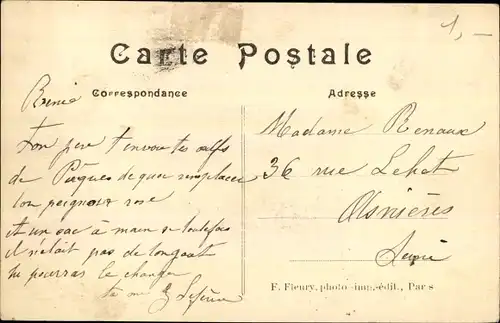 1,-
Carte Postale
Correspondance
Adresse
Renée
Ton père t'envoie tes œufs
de Pâques de quoi remplacer
ton peignoir rose
et un sac à main si toutefois
il n'était pas de ton goût
tu pourras le changer
ta
Madame Renaux
36 rue Lehot
Asnières
Seine
F. Fleury, photo-imp.-édit., Par s